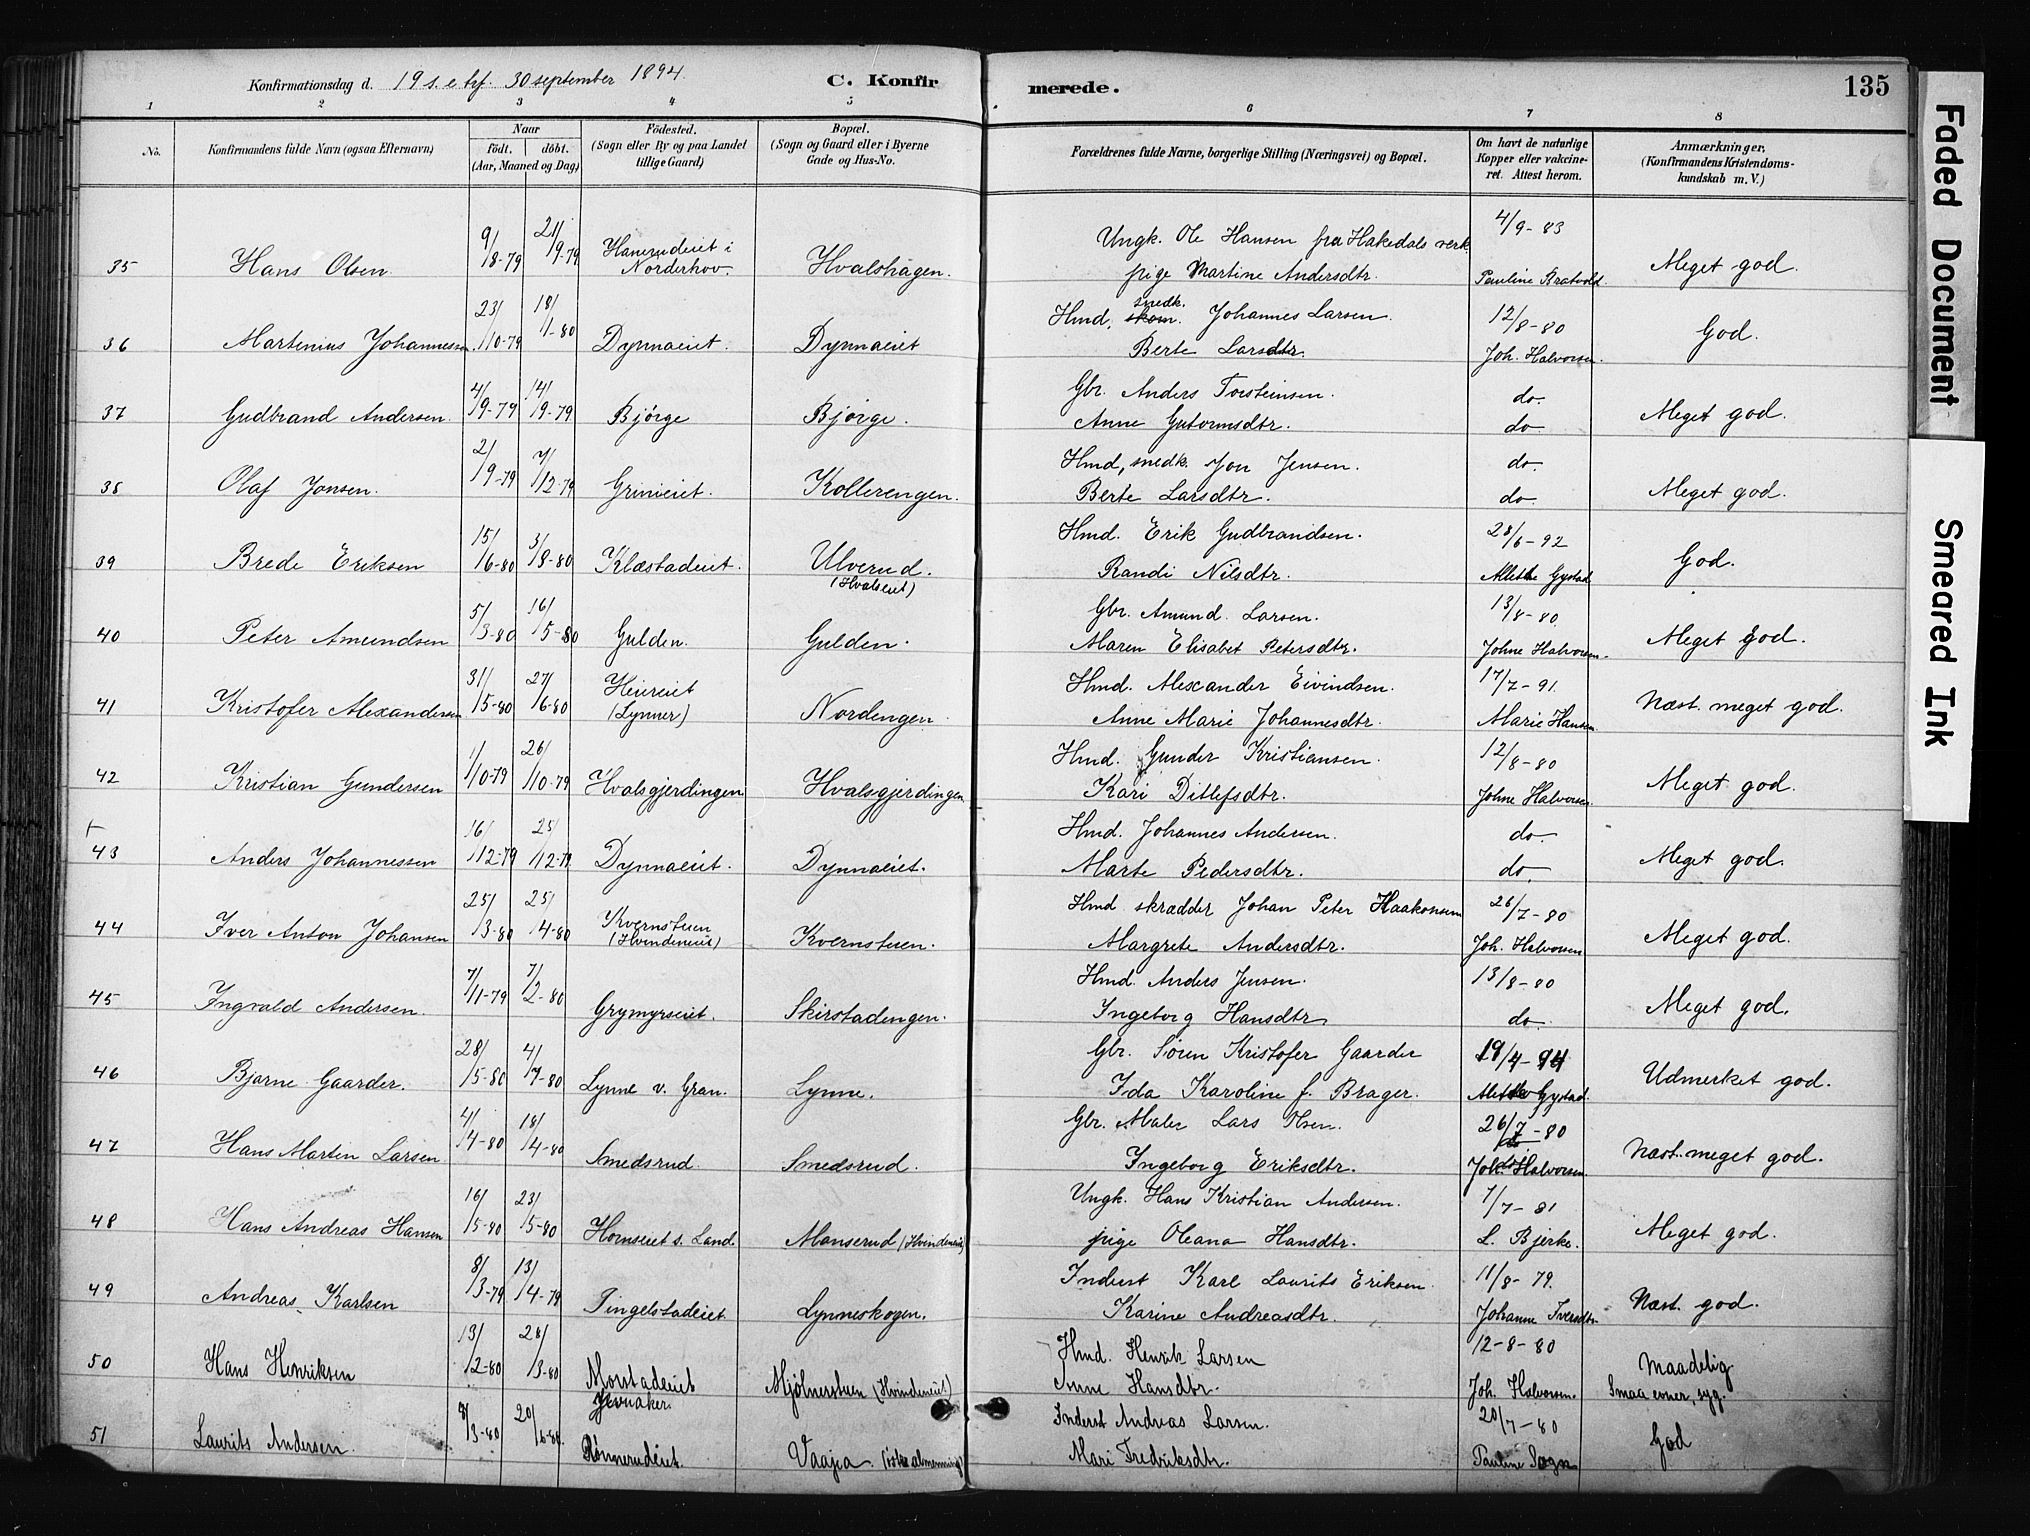 Konfirmationsdag d. 19 s. e. trf. 30 september 1894.
C. Konfirmerede.
135
1 2 3 4 5 6 7 8
No. Konfirmandens fulde Navn (ogsaa Efternavn) Naar födt. döbt. (Aar, Maaned og Dag) Födested. (Sogn eller By og paa Landet tillige Gaard) Bopæl. (Sogn og Gaard eller i Byerne Gade og Hus-No. Forældrenes fulde Navne, borgerlige Stilling (Næringsvei) og Bopæl. Om havt de naturlige Kopper eller vakcineret. Attest herom. Anmærkninger. (Konfirmandens Kristendomskundskab m. V.)
35 Hans Olsen 9/8-79 21/9-79 Hanerudeiet i Norderhov. Hvalshagen. Ungk. Ole Hansen fra Hakedals verk pige Martine Andersdtr. 4/9-83 Pauline Bratvold Meget god.
36 Martinius Johannessen 23/10-79 18/1-80 Dynnaeiet. Dynnaeiet Hmd. snedk. Johannes Larsen. Berte Larsdtr. 12/8-80 Joh. Halvorsen. God.
37 Gudbrand Andersen. 4/9-79 14/9-79 Bjørge Bjørge. Gbr. Anders Torsteinsen. Anne Gutormsdtr. do. do. Meget god.
38 Olaf Jonsen. 2/9-79 7/12-79 Grinieiet. Kollerengen. Hmd, snedk. Jon Jensen. Berte Larsdtr. do. do. Meget god.
39 Brede Eriksen 15/6-80 3/8-80 Klæstadeiet. Ulverud. (Hvalseiet) Hmd. Erik Gudbrandsen. Randi Nilsdtr. 28/6-92 Alethe Gystad God.
40 Peter Amundsen 5/3-80 16/5-80 Gulden. Gulden. Gbr. Amund Larsen. Maren Elisabet Petersdtr. 13/8-80. Johne Halvorsen. Meget god.
41 Kristofer Alexandersen 31/5-80 27/6-80 Heiereiet (Lynner) Nordengen. Hmd. Alexander Eivindsen. Anne Marie Johannesdtr. 17/7-91. Marie Hansen Næst. meget god.
42 Kristian Gundersen 1/10-79 26/10-79 Hvalsgjerdingen Hvalsgjerdingen Hmd. Gunder Kristiansen. Kari Ditlefsdtr. 12/8-80 Johne Halvorsen. Meget god.
43 Anders Johannessen 16/12-79 25/12-79 Dynnaeiet. Dynnaeiet. Hmd. Johannes Andersen. Marte Pedersdtr. do. do. Meget god.
44 Iver Anton Johansen 25/3-80 25/4-80 Kvernstuen (Hvindeneiet) Kvernstuen. Hmd skrædder Johan Peter Haakonsen Margrete Andersdtr. 26/7-80 Joh. Halvorsen Meget god.
45 Ingvald Andersen. 7/11-79 7/2-80 Grymyrseiet. Skirstadengen. Hmd. Anders Jensen. Ingeborg Hansdtr. 13/8-80 do. Meget god.
46 Bjarne Gaarder. 28/5-80 4/7-80 Lynne v. Gran. Lynne. Gbr. Søren Kristofer Gaarder Ida Karoline f. Brager. 19/4-94 Alethe Gystad. Udmerket god.
47 Hans Martin Larsen 4/4-80 18/4-80 Smedsrud. Smedsrud. Gbr. Maler Lars Olsen. Ingeborg Eriksdtr. 26/7-80 Joh. Halvorsen Næst. meget god.
48 Hans Andreas Hansen 16/5-80 23/5-80 Hornseiet s. Land. Monserud (Hvindeneiet) Ungk. Hans Kristian Andersen. pige Oleana Hansdtr. 7/7-81 L. Bjerke. Meget god.
49 Andreas Karlsen 8/3-79 13/4-79 Tingelstadeiet. Lynneskogen. Inderst Karl Laurits Eriksen. Karine Andreasdtr. 11/8-79. Johanne Iversdtr Næst. god.
50 Hans Henriksen 13/2-80 28/3-80 Morstadeiet Jevnaker. Mjølnerstuen (Hvindeneiet) Hmd. Henrik Larsen Anne Hansdtr. 12-8-80 Joh. Halvorsen. Maadelig Smaa evner, syg.
51 Laurits Andersen. 8/3-80 20/6-80. Rønnerudeiet. Vaaja Inderst Andreas Larsen. Mari Fredriksdtr. 20/7-80 Pauline Sogn God
Faded Document
Smeared Ink